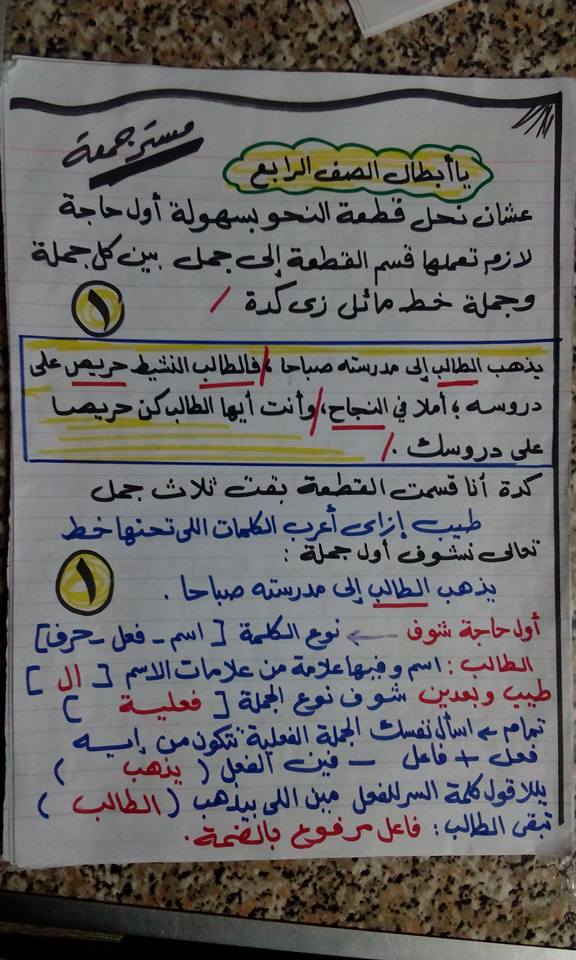 مستر جمعة
يا أبطال الصف الرابع
عشان نحل قطعة النحو بسهولة أول حاجة
لازم تعملها قسم القطعة إلى جمل بين كل جملة
وجملة خط مائل زى كدة /
١
يذهب الطالب إلى مدرسته صباحا ،/ فالطالب النشيط حريص على
دروسه ؛ أملا في النجاح ،/ وأنت أيها الطالب كن حريصا
على دروسك . /
كدة أنا قسمت القطعة بقت ثلاث جمل
طيب إزاى أعرب الكلمات اللى تحتها خط
تعالى نشوف أول جملة :
١
يذهب الطالب إلى مدرسته صباحا .
أول حاجة شوف ← نوع الكلمة [ اسم - فعل - حرف ]
الطالب : اسم وفيها علامة من علامات الاسم [ ال ]
طيب وبعدين شوف نوع الجملة [ فعلية ]
تمام ← اسأل نفسك الجملة الفعلية تتكون من إيه
فعل + فاعل - فين الفعل ( يذهب )
يللا قول كلمة السر للفعل مين اللى بيذهب ( الطالب )
تبقى الطالب : فاعل مرفوع بالضمة .